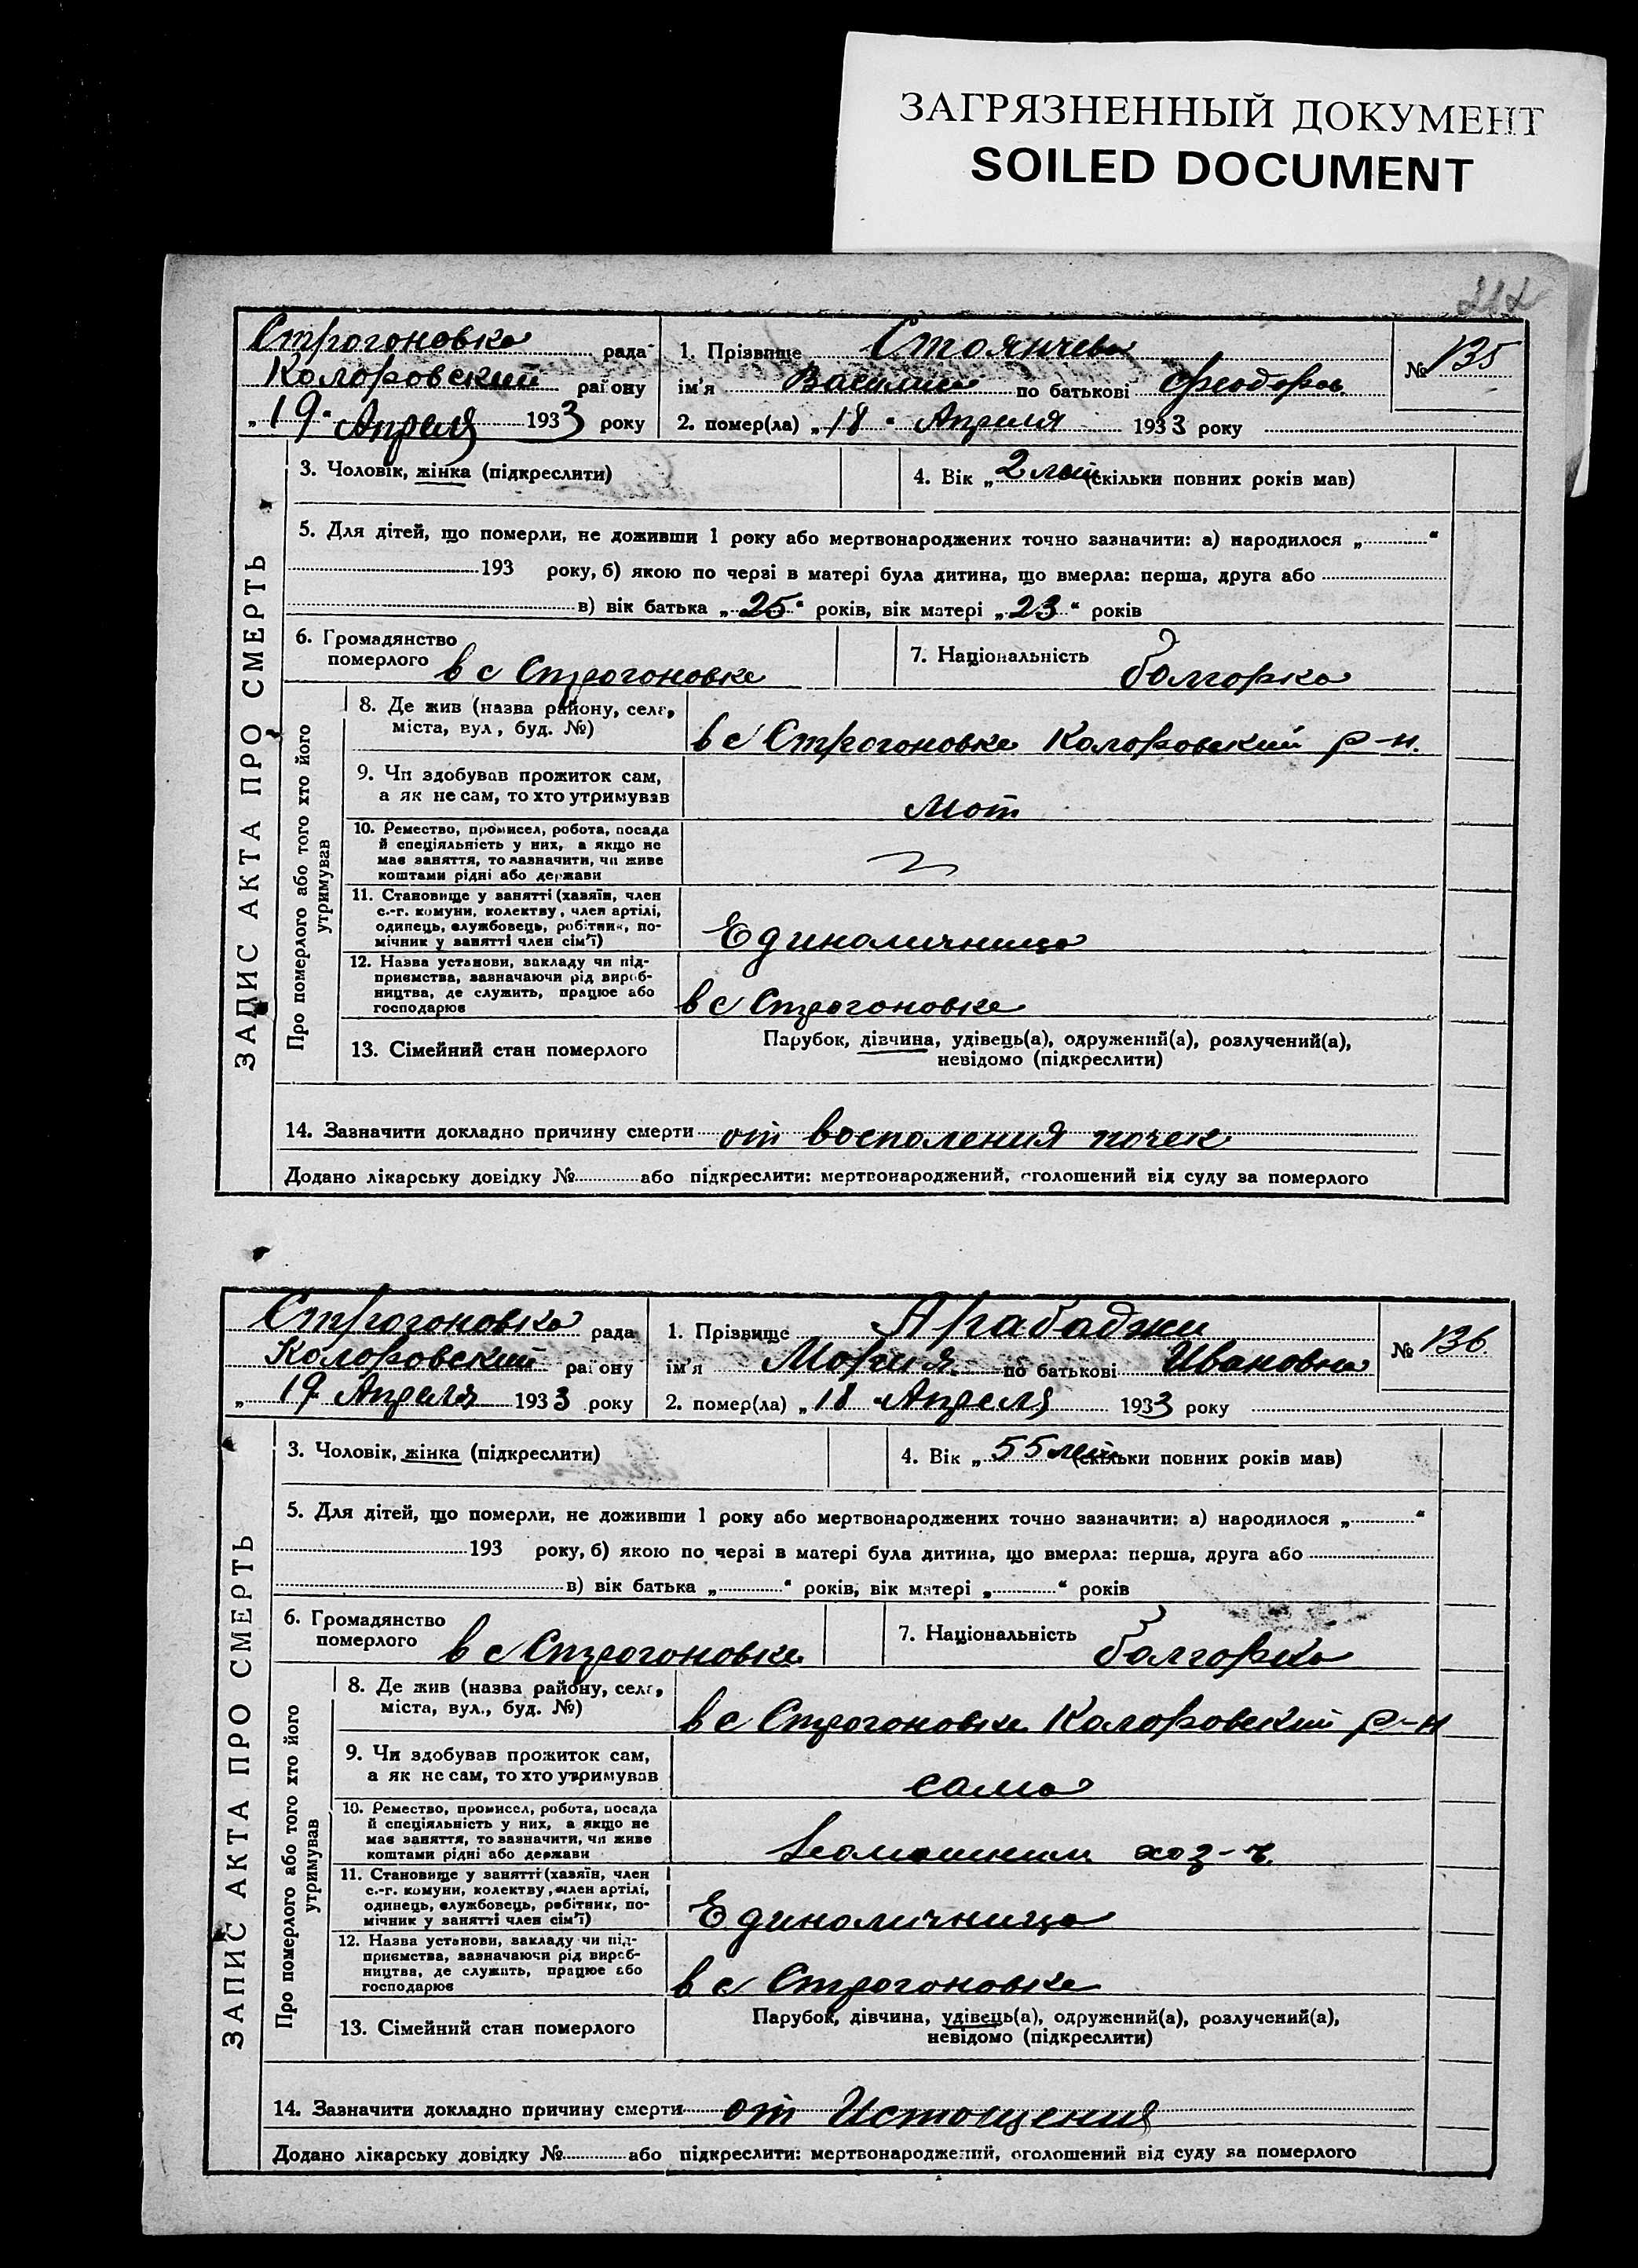 ЗАГРЯЗНЕННЫЙ ДОКУМЕНТ
SOILED DOCUMENT
212
ЗАПИС АКТА ПРО СМЕРТЬ
Строгоновка рада
Коларовский району
„19" Апреля 1933 року
1. Прізвище Стоянчева
ім'я Василиса по батькові Феодоров.
2. помер(ла) „18" Апреля 1933 року
№ 135
3. Чоловік, жінка (підкреслити)
4. Вік „2 лет (скільки повних років мав)
5. Для дітей, що померли, не доживши 1 року або мертвонароджених точно зазначити: а) народилося „ “
193 року, б) якою по черзі в матері була дитина, що вмерла: перша, друга або
в) вік батька „25“ років, вік матері „23“ років
6. Громадянство
померлого в с Строгоновке
7. Національність болгарка
Про померлого або того хто його
утримував
8. Де жив (назва району, села,
міста, вул, буд. №)
в с Строгоновке Коларовский р-н.
9. Чи здобував прожиток сам,
а як не сам, то хто утримував
мат
10. Ремество, промисел, робота, посада
й спеціяльність у них, а якщо не
має заняття, то зазначити, чи живе
коштами рідні або держави
11. Становище у занятті (хазяїн, член
с.-г. комуни, колектву, член артілі,
одинець, службовець, робітник, по-
мічник у занятті член сім'ї)
Единоличница
12. Назва установи, закладу чи під-
приємства, зазначаючи рід вироб-
ництва, де служить, працює або
господарює
в с Строгоновке
13. Сімейний стан померлого
Парубок, дівчина, удівець(а), одружений(а), розлучений(а),
невідомо (підкреслити)
14. Зазначити докладно причину смерти от воспаления почек
Додано лікарську довідку № або підкреслити: мертвонароджений, оголошений від суду за померлого
ЗАПИС АКТА ПРО СМЕРТЬ
Строгоновка рада
Коларовский району
„19 Апреля 1933 року
1. Прізвище Арабаджи
ім'я Мария по батькові Ивановна
2. помер(ла) „18 " Апреля 1933 року
№ 136.
3. Чоловік, жінка (підкреслити)
4. Вік „55 лет (скільки повних років мав)
5. Для дітей, що померли, не доживши 1 року або мертвонароджених точно зазначити: а) народилося „ “
193 року, б) якою по черзі в матері була дитина, що вмерла: перша, друга або
в) вік батька „ “ років, вік матері „ “ років
6. Громадянство
померлого в с Строгоновке
7. Національність болгарка
Про померлого або того хто його
утримував
8. Де жив (назва району, села,
міста, вул., буд. №)
в с Строгоновке Коларовский р-н
9. Чи здобував прожиток сам,
а як не сам, то хто утримував
сама
10. Ремество, промисел, робота, посада
й спеціяльність у них, а якщо не
має заняття, то зазначити, чи живе
коштами рідні або держави
хоз-ч.
11. Становище у занятті (хазяїн, член
с.-г. комуни, колектву, член артілі,
одинець, службовець, робітник, по-
мічник у занятті член сім'ї)
Единоличница
12. Назва установи, закладу чи під-
приємства, зазначаючи рід вироб-
ництва, де служить, працює або
господарює
в с Строгоновке
13. Сімейний стан померлого
Парубок, дівчина, удівець(а), одружений(а), розлучений(а),
невідомо (підкреслити)
14. Зазначити докладно причину смерти от Истощения
Додано лікарську довідку № або підкреслити: мертвонароджений, оголошений від суду за померлого